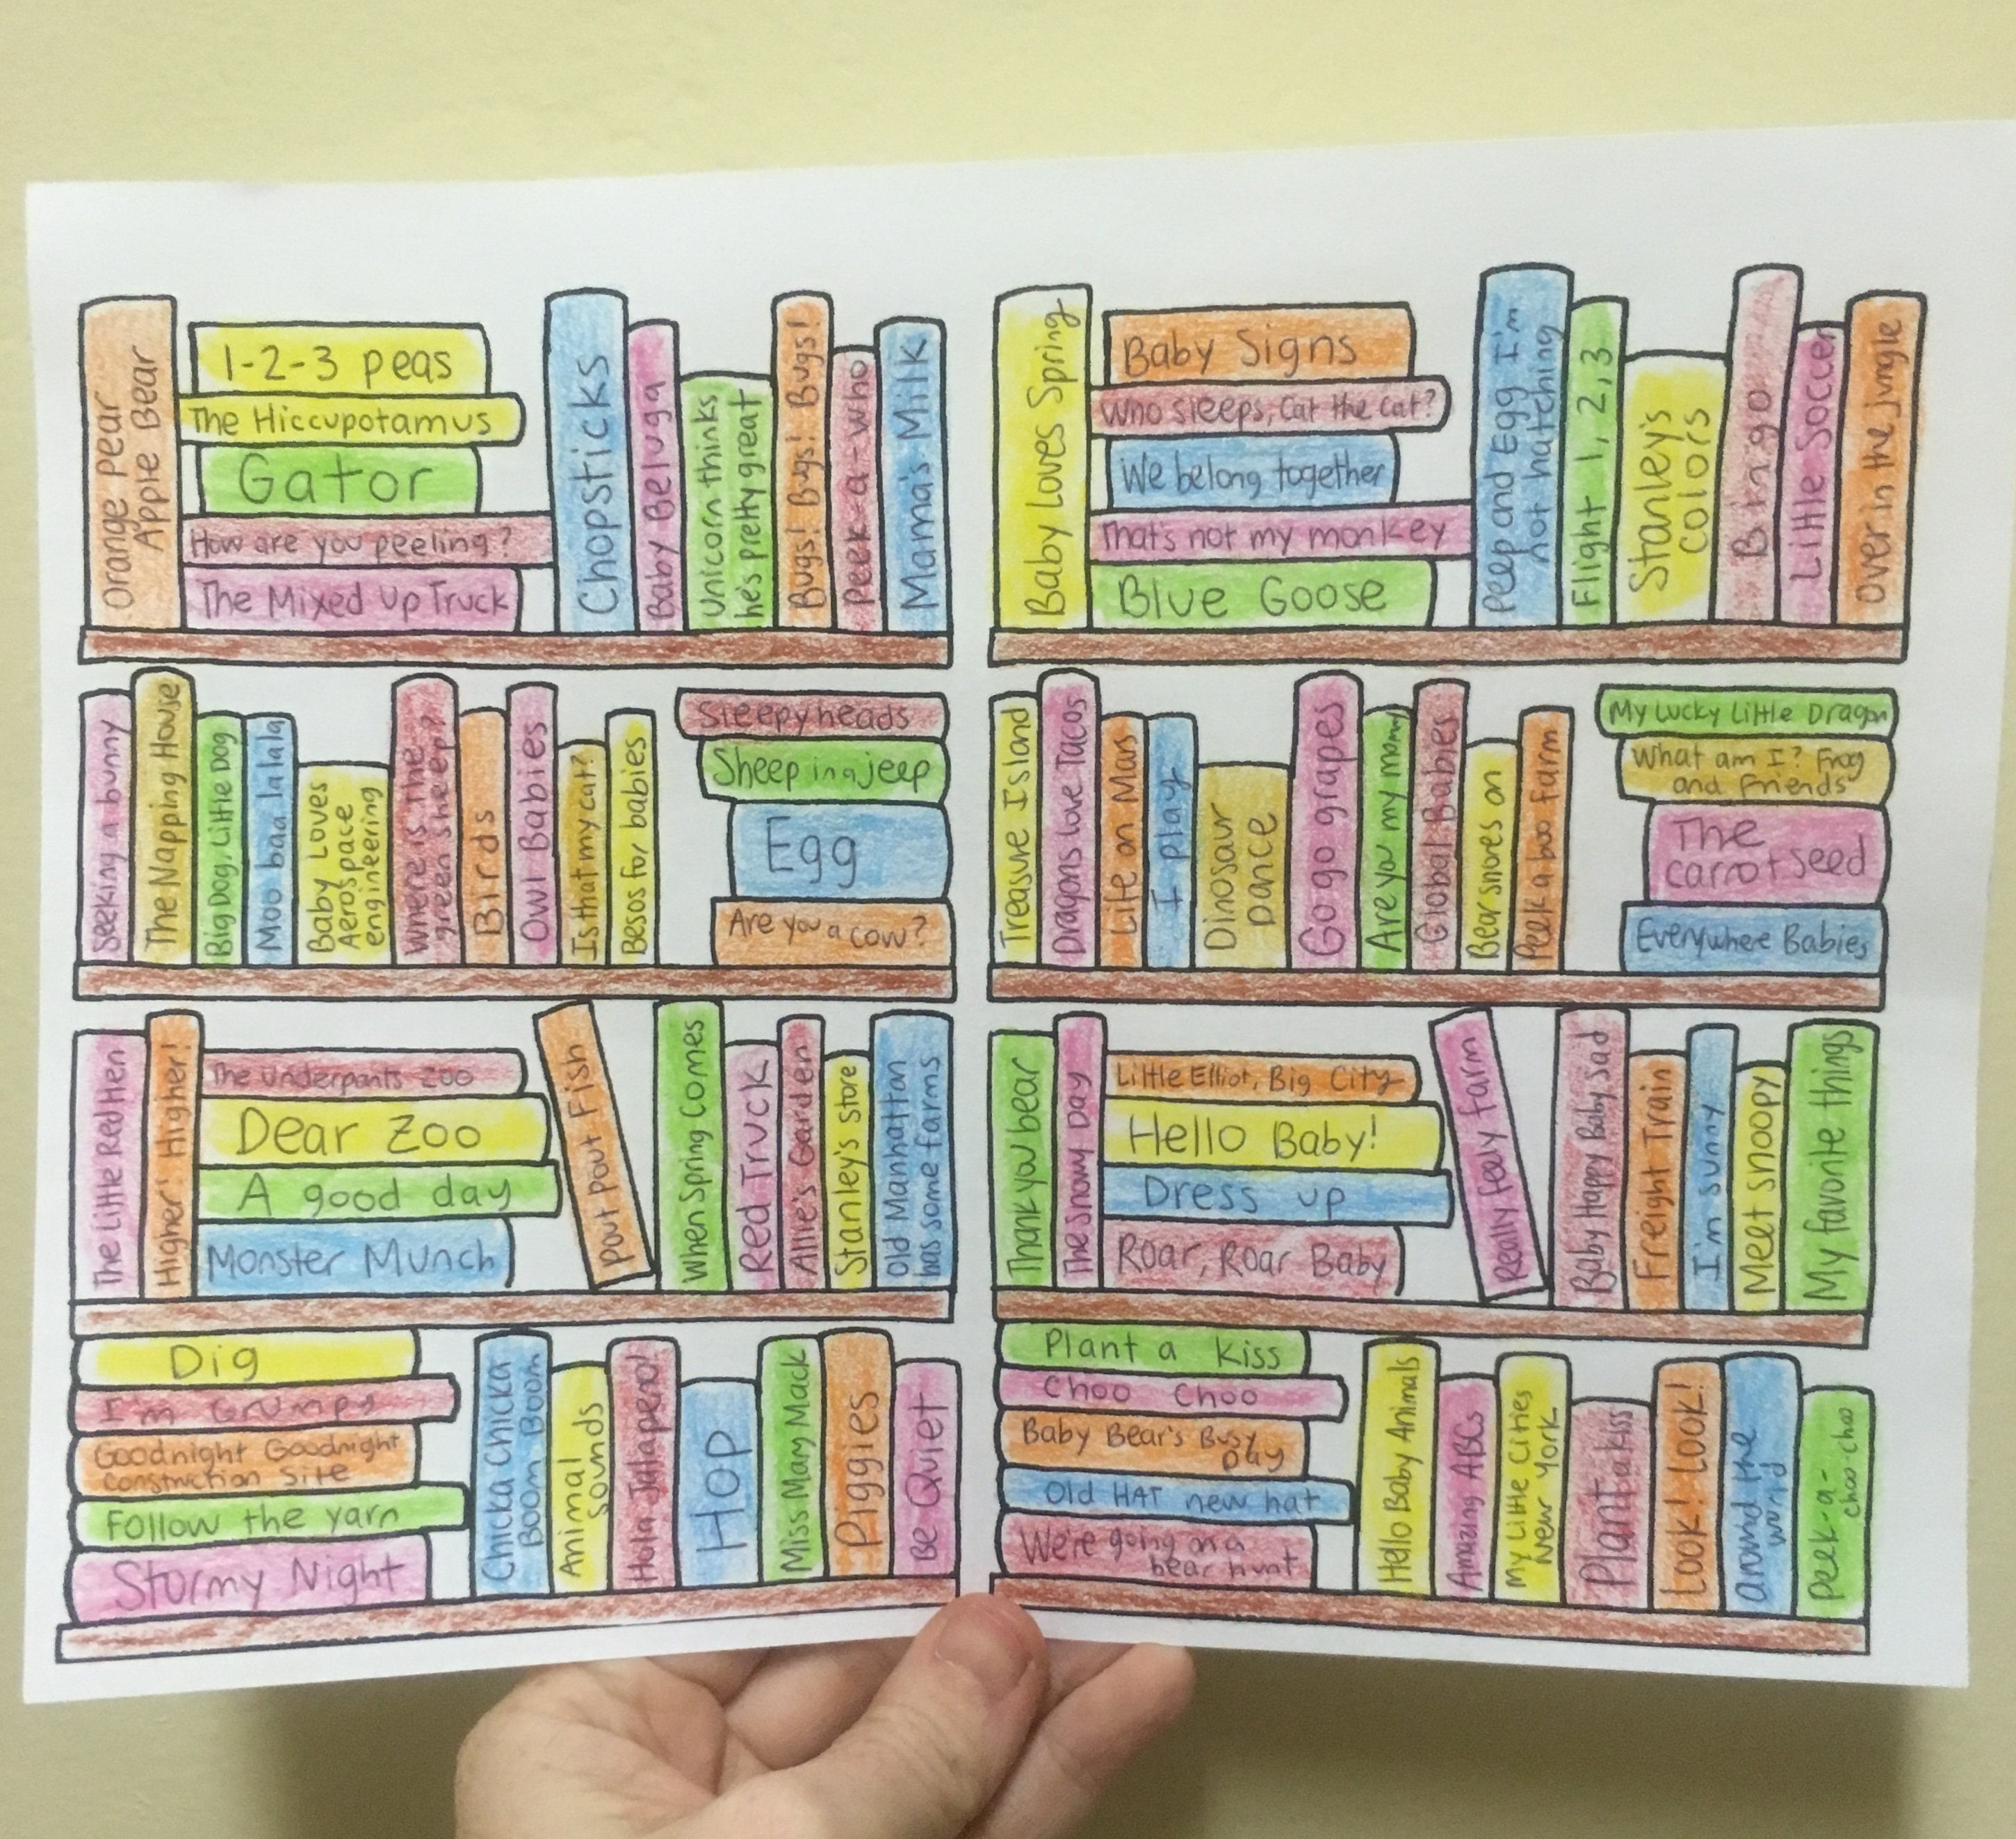 Orange Pear
Apple Bear
1-2-3 peas
The Hiccupotamus
Gator
How are you peeling?
The Mixed Up Truck
Chopsticks
Baby Beluga
Unicorn thinks
he's pretty great
Bugs! Bugs! Bugs!
Peek-a-who
Mama's Milk
Seeking a bunny
The Napping House
Big Dog, Little Dog
Moo baa lalala
Baby Loves
Aerospace
engineering
Where is the
green sheep?
Birds
Owl Babies
Is that my cat?
Besos for babies
Sleepyheads
Sheep in a jeep
Egg
Are you a cow?
The Little Red Hen
Higher! Higher!
The Underpants Zoo
Dear Zoo
A good day
Monster Munch
Pout pout Fish
When Spring Comes
Red Truck
Allie's Garden
Stanley's Store
Old Manhattan
has some farms
Dig
I'm Grumpy
Goodnight Goodnight
Construction Site
Follow the yarn
Stormy Night
Chicka Chicka
Boom Boom
Animal
Sounds
Hola Jalapeno!
Hop
Miss Mary Mack
Piggies
Be Quiet
Baby Loves Spring
Baby Signs
Who sleeps, Cat the Cat?
We belong together
That's not my monkey
Blue Goose
Peep and Egg I'm
not hatching
Flight 1, 2, 3
Stanley's
Colors
Bingo
Little Soccer
Over in the jungle
Treasure Island
Dragons love Tacos
Life on Mars
I play
Dinosaur
Dance
Go go grapes
Are you my mommy
Global Babies
Bear snores on
Peek a boo farm
My Lucky Little Dragon
What am I? Frog
and Friends
The
carrot seed
Everywhere Babies
Thank you bear
The Snowy Day
Little Elliot, Big City
Hello Baby!
Dress up
Roar, Roar Baby
Really feely farm
Baby Happy Baby Sad
Freight Train
I'm sunny
Meet Snoopy
My favorite things
Plant a Kiss
Choo Choo
Baby Bear's Busy
Day
Old HAT new hat
We're going on a
bear hunt
Hello Baby Animals
Amazing ABCs
My Little Cities
New York
Plant a kiss
Look! Look!
around the
world
Peek-a-
choo-choo